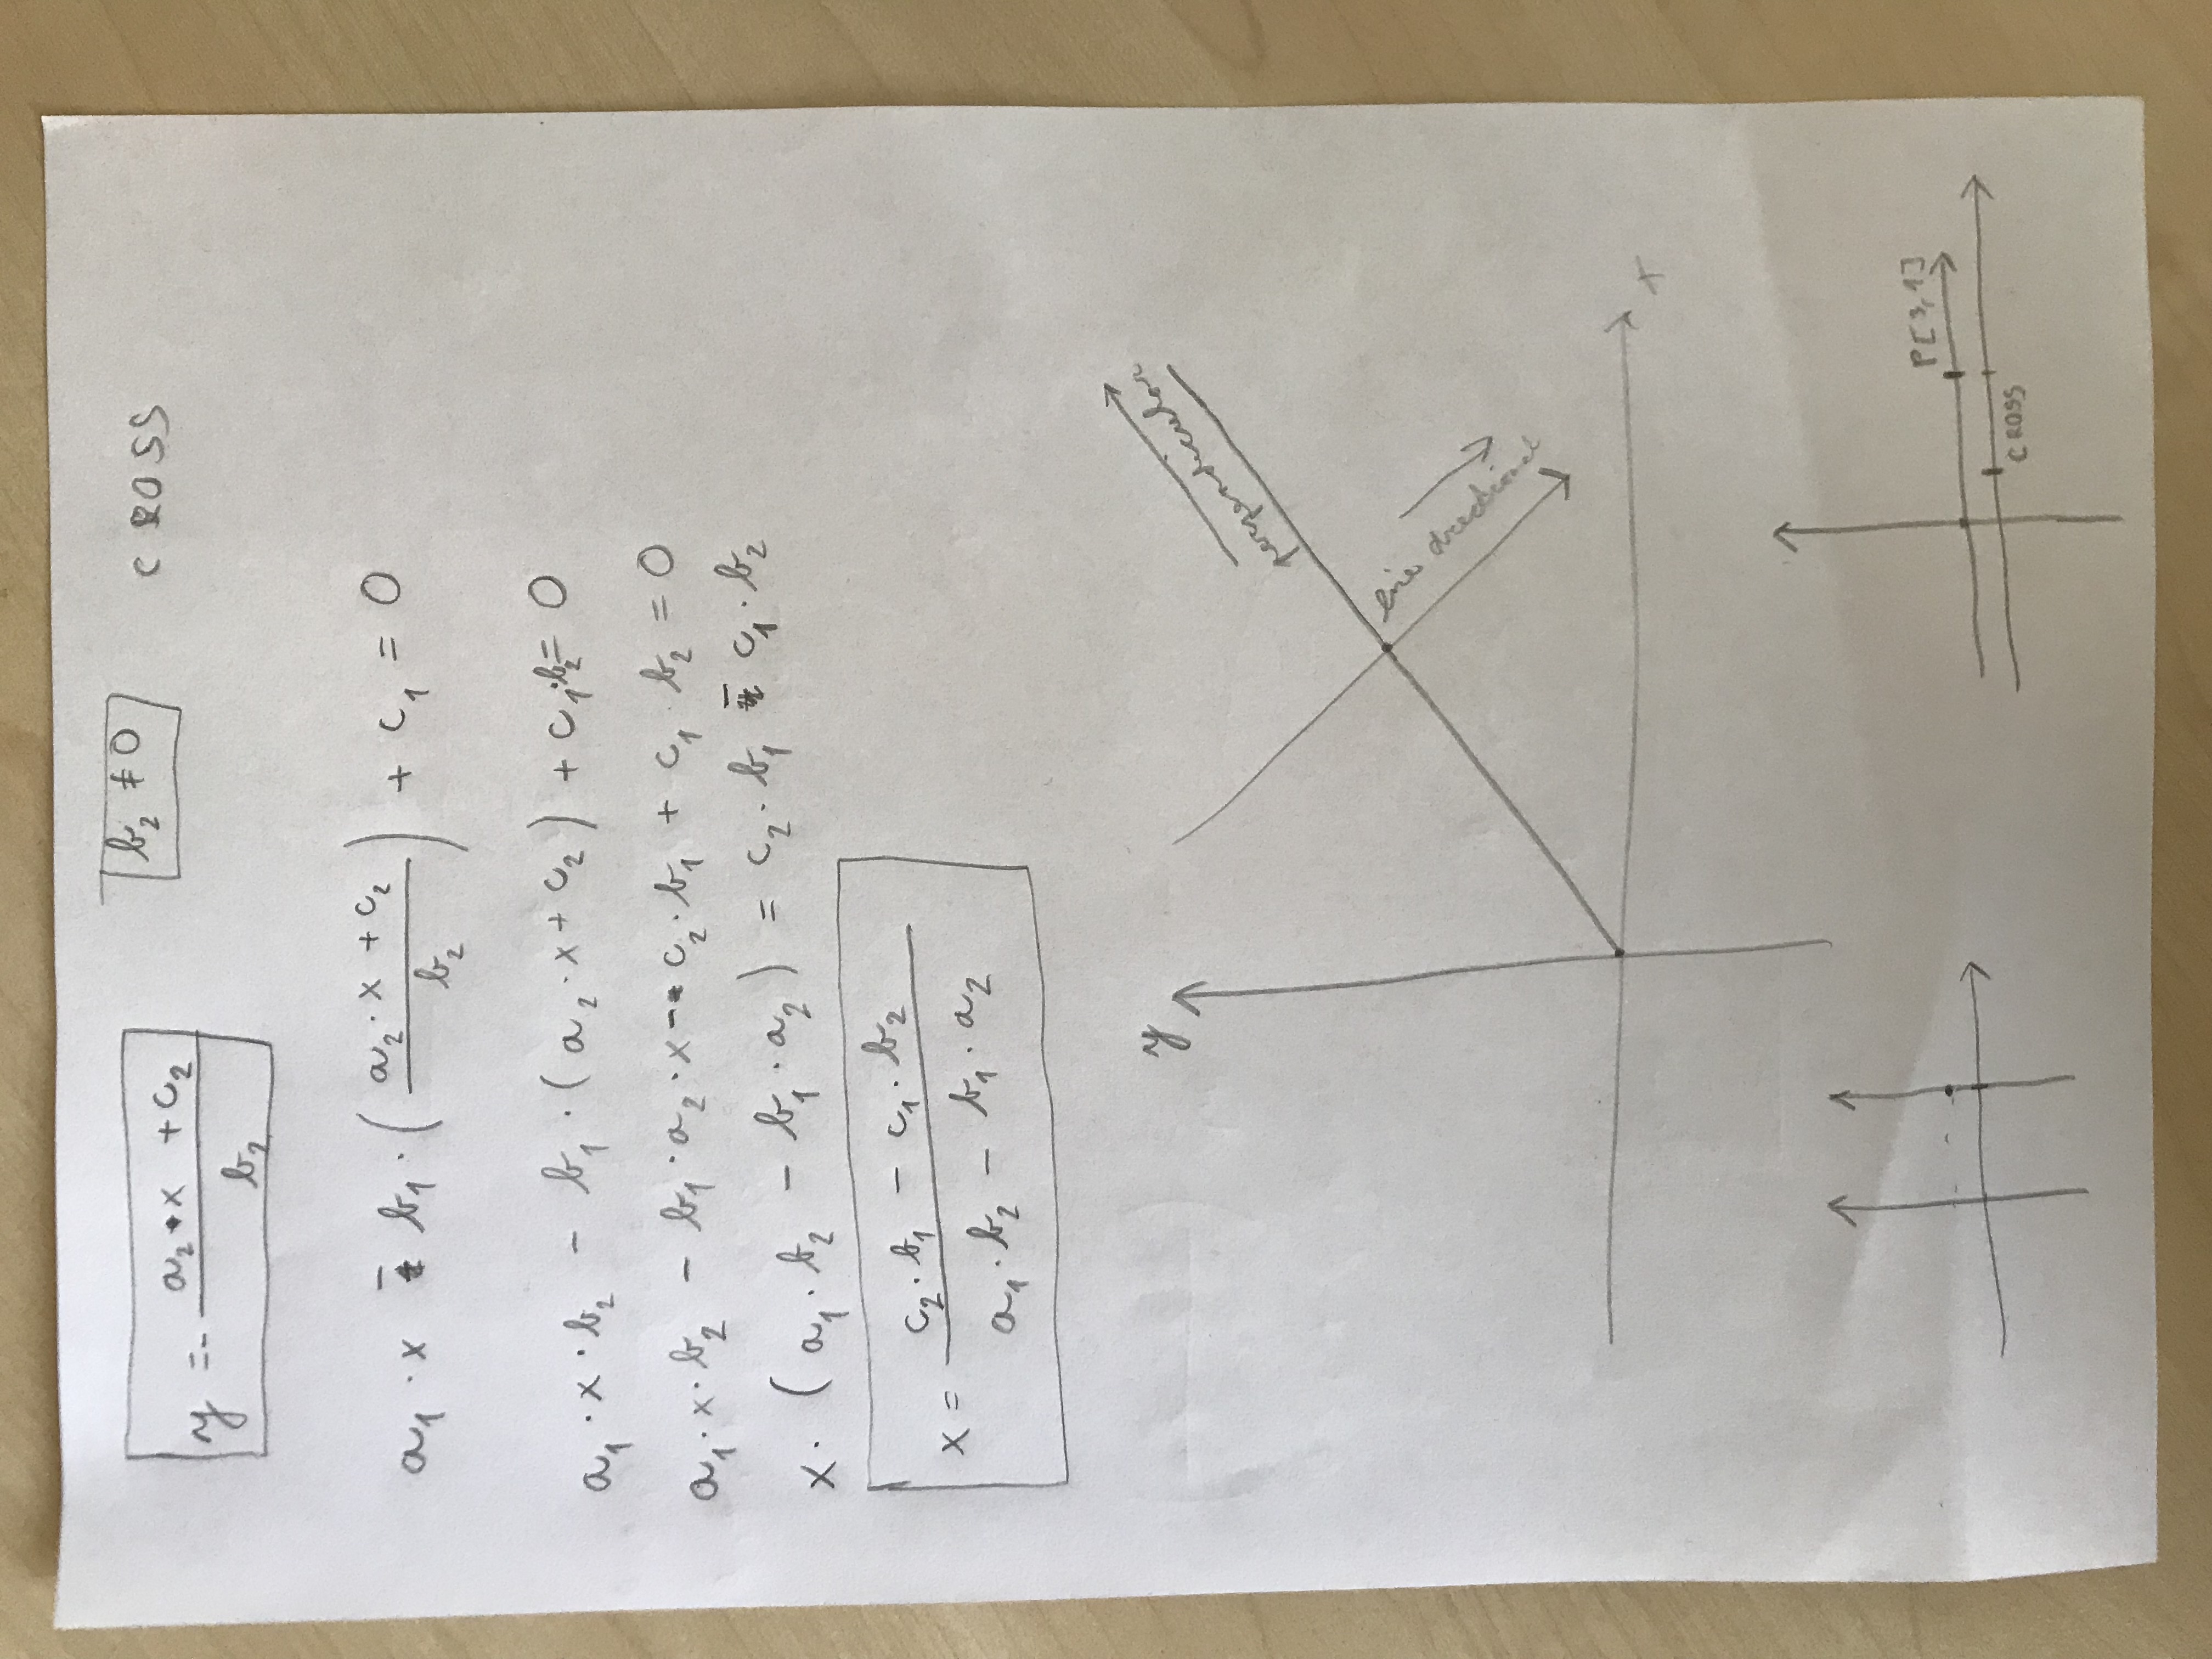 y = - (a₂ · x + c₂) / b₂    b₂ ≠ 0    CROSS
a₁ · x - b₁ · ( (a₂ · x + c₂) / b₂ ) + c₁ = 0
a₁ · x · b₂ - b₁ · ( a₂ · x + c₂ ) + c₁ · b₂ = 0
a₁ · x · b₂ - b₁ · a₂ · x - c₂ · b₁ + c₁ · b₂ = 0
x · ( a₁ · b₂ - b₁ · a₂ ) = c₂ · b₁ - c₁ · b₂
x = (c₂ · b₁ - c₁ · b₂) / (a₁ · b₂ - b₁ · a₂)
y
perpendicular
line directional
x
P[3,1]
CROSS